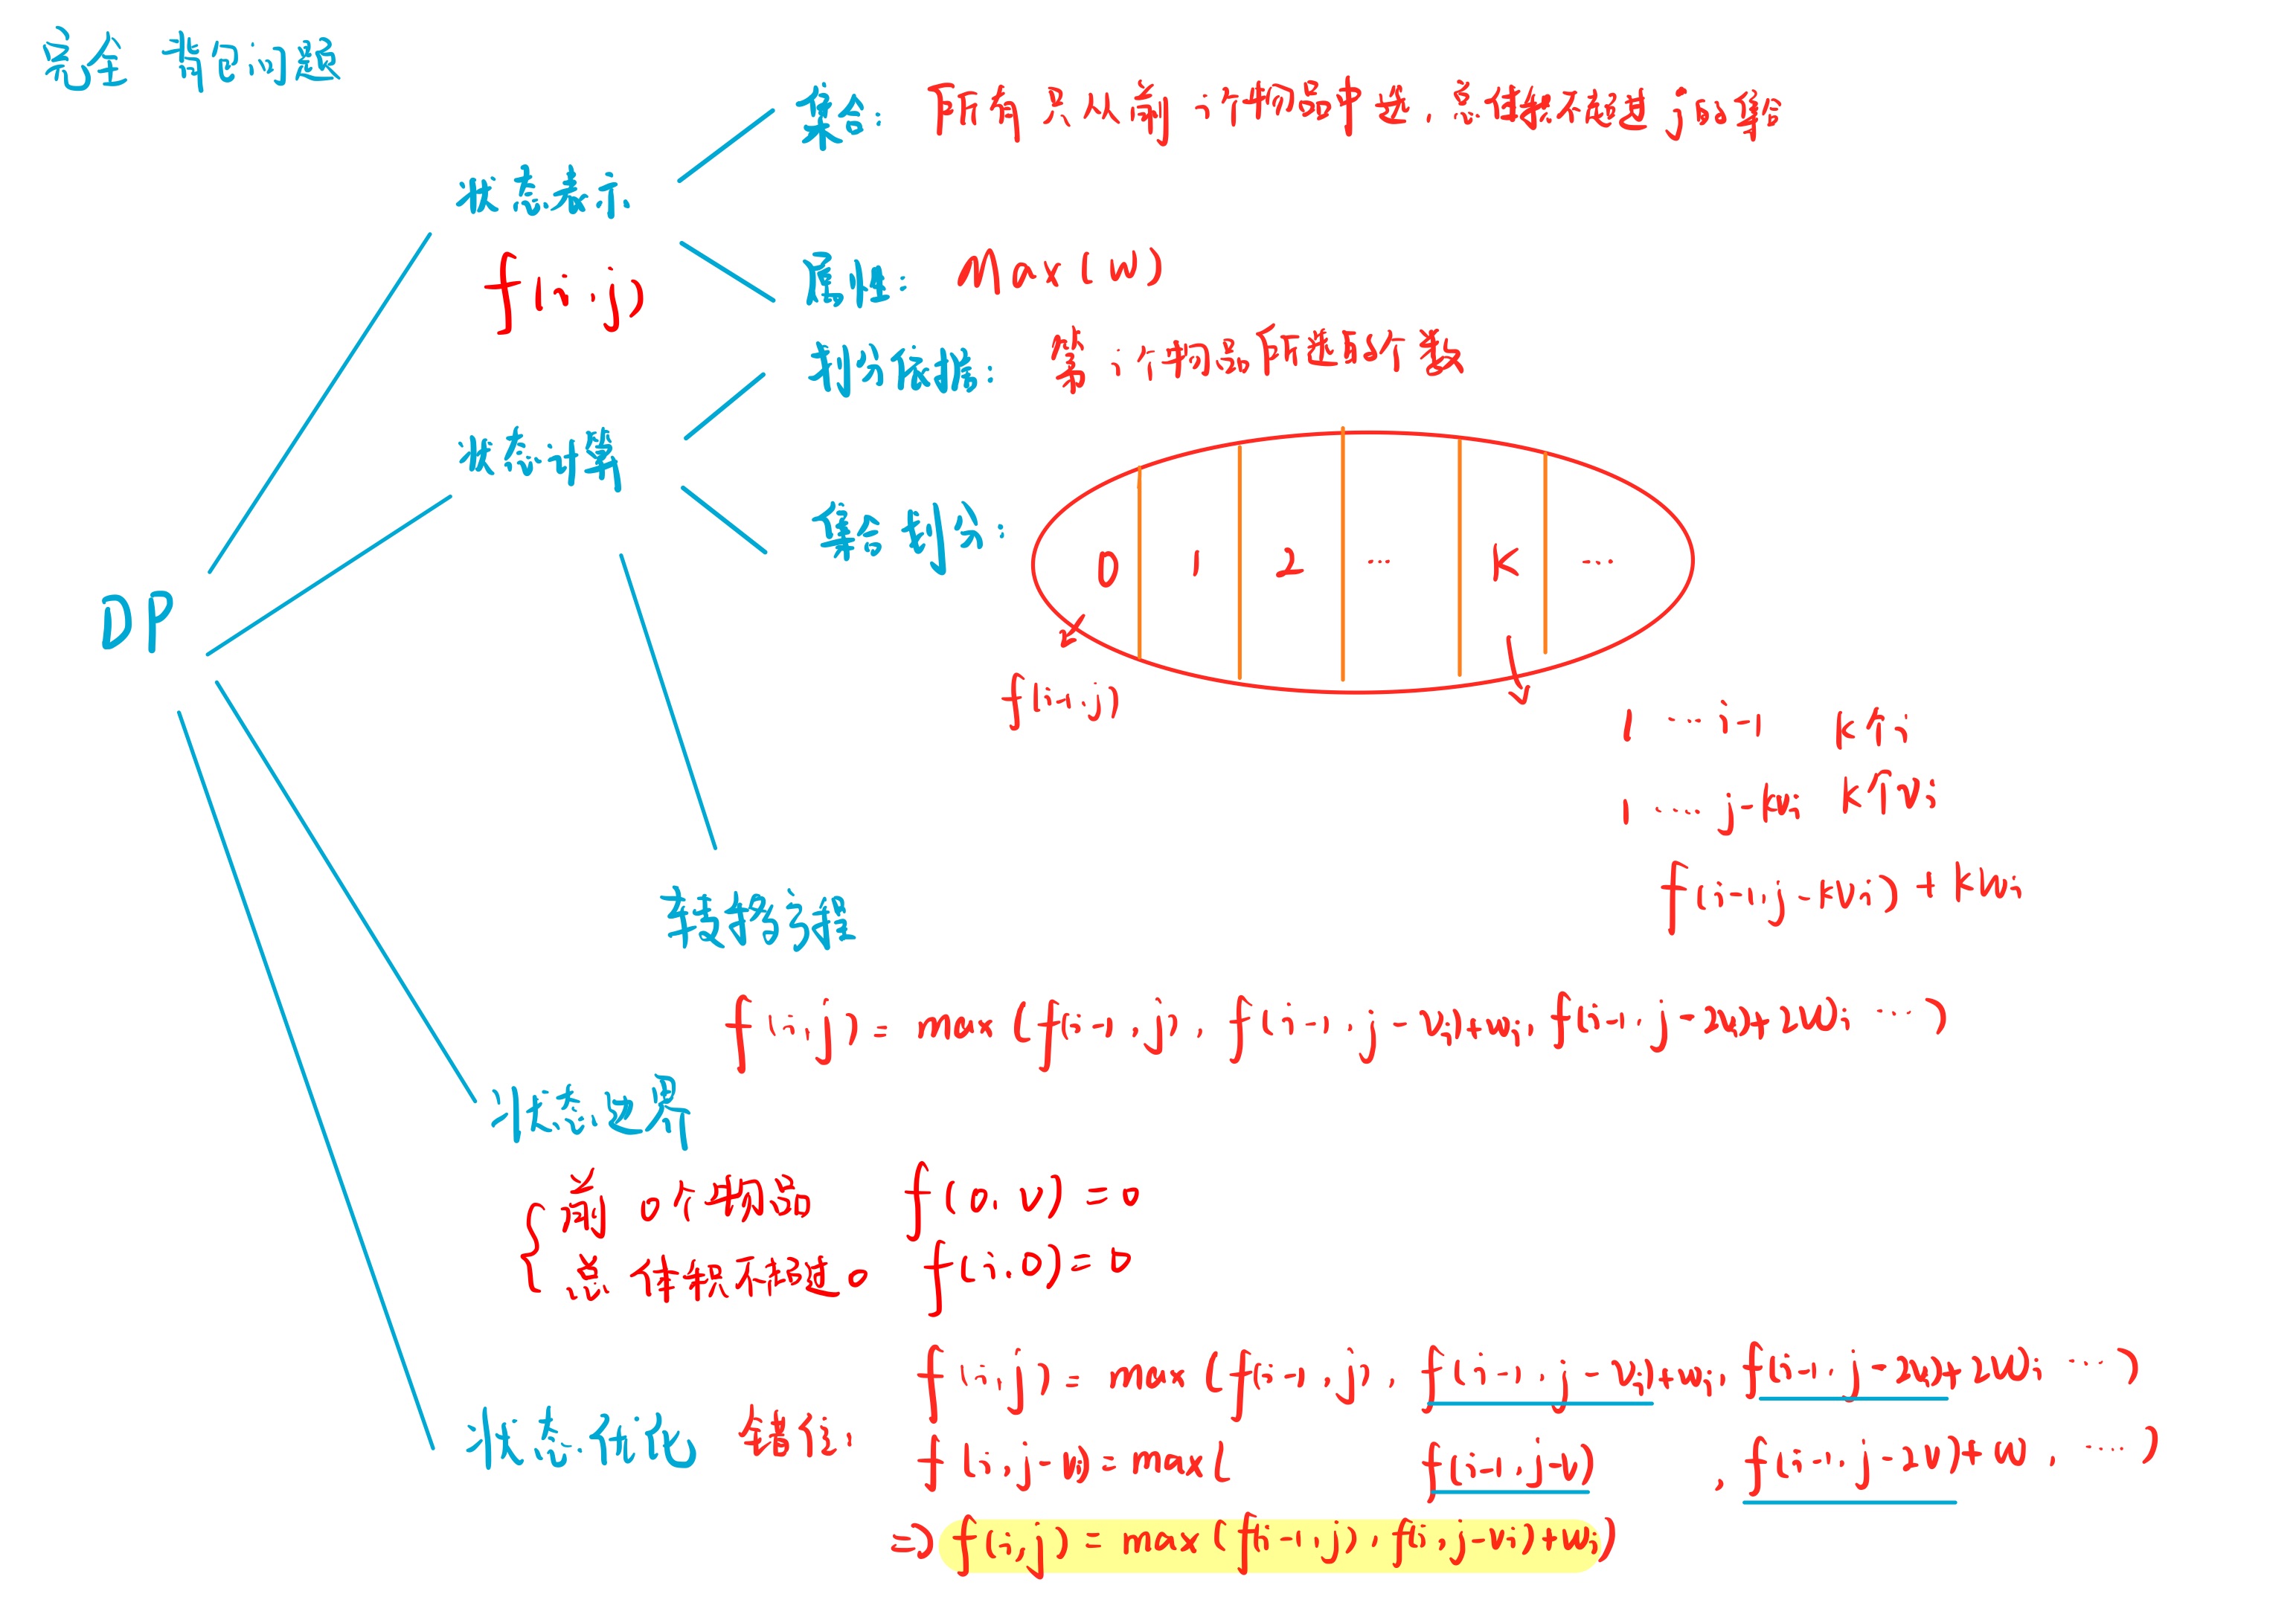 完全背包问题
集合: 所有只从前i个物品中选,总体积不超过j的集合
状态表示
f(i,j)
属性: Max(w)
划分依据: 第i个物品所选的个数
状态计算
集合划分:
0 1 2 ... K ...
DP
f(i-1,j)
1 ... i-1 K个i
1 .... j-kvi K个vi
f(i-1,j-kvi)+kwi
转移方程
f(i,j)=max(f(i-1,j),f(i-1,j-vi)+wi,f(i-1,j-2vi)+2wi ...)
状态边界
前0个物品 f(0,v)=0
总体积不超过0 f(i,0)=0
f(i,j)=max(f(i-1,j),f(i-1,j-vi)+wi,f(i-1,j-2vi)+2wi ...)
状态优化 错位:
f(i,j-vi)=max( f(i-1,j-v) ,f(i-1,j-2v)+w, ....)
=> f(i,j)=max(f(i-1,j),f(i,j-vi)+wi)